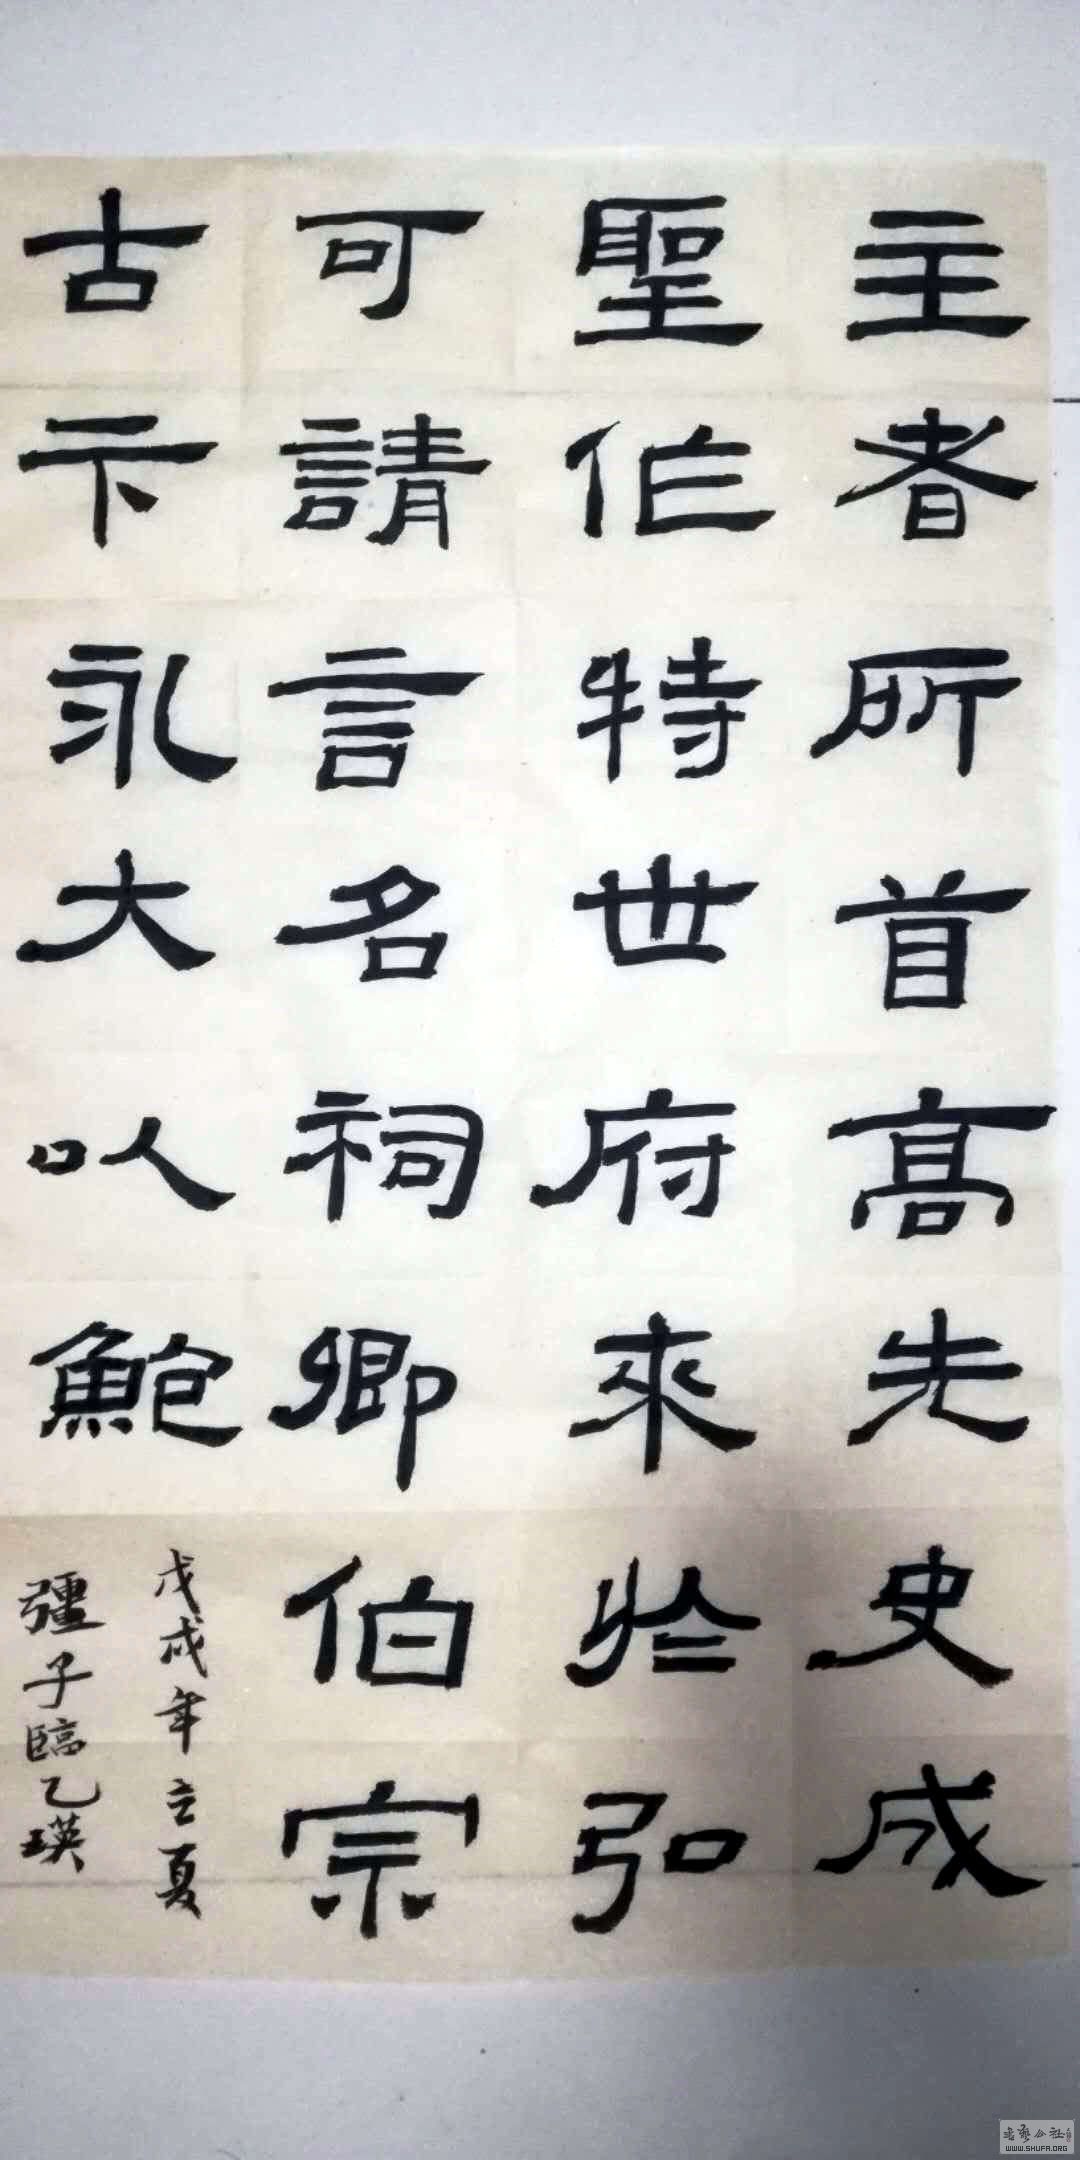 主者所首高先史成
聖作特世府來於弘
可請言名祠卿伯宗
古卞永大以鮑
戊戌年立夏
彊子臨乙瑛
WWW.SHUFA.ORG